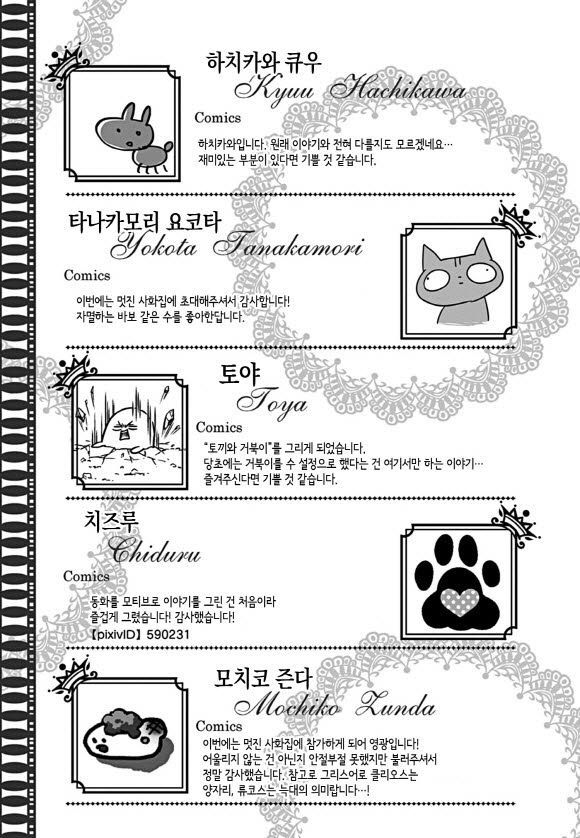 하치카와 큐우
Kyuu Hachikawa
Comics
하치카와입니다. 원래 이야기와 전혀 다를지도 모르겠네요…
재미있는 부분이 있다면 기쁠 것 같습니다.
타나카모리 요코타
Yokota Tanakamori
Comics
이번에는 멋진 사화집에 초대해주셔서 감사합니다!
자멸하는 바보 같은 수를 좋아한답니다.
토야
Toya
Comics
"토끼와 거북이"를 그리게 되었습니다,
당초에는 거북이를 수 설정으로 했다는 건 여기서만 하는 이야기…
즐겨주신다면 기쁠 것 같습니다.
치즈루
Chiduru
Comics
동화를 모티브로 이야기를 그린 건 처음이라
즐겁게 그렸습니다! 감사했습니다!
【pixivID】590231
모치코 즌다
Mochiko Zunda
Comics
이번에는 멋진 사화집에 참가하게 되어 영광입니다!
어울리지 않는 건 아닌지 안절부절 못했지만 불러주셔서
정말 감사했습니다. 참고로 그리스어로 클리오스는
양자리, 류코스는 늑대의 의미랍니다…!